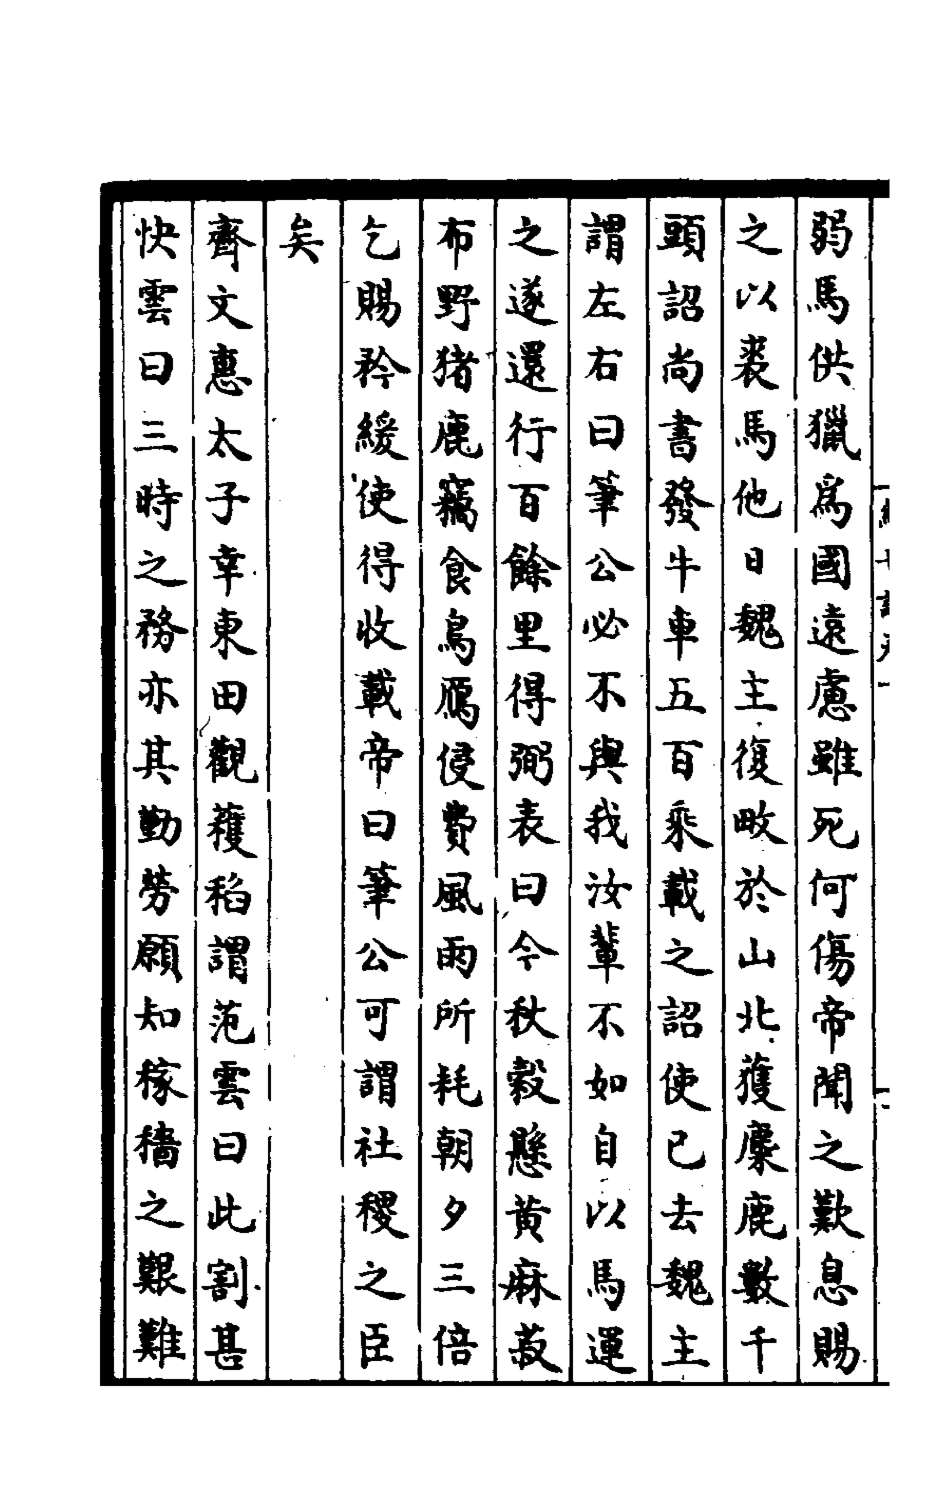 弱馬供獵為國遠慮雖死何傷帝聞之歎息賜
之以裘馬他日魏主復畋於山北獲麋鹿數千
頭詔尚書發牛車五百乘載之詔使已去魏主
謂左右曰筆公必不與我汝輩不如自以馬運
之遂還行百餘里得弼表曰今秋穀懸黃麻菽
布野猪鹿竊食鳥鴈侵費風雨所耗朝夕三倍
乞賜矜緩使得收載帝曰筆公可謂社稷之臣
矣
齊文惠太子幸東田觀穫稻謂范雲曰此割甚
快雲曰三時之務亦其勤勞願知稼穡之艱難